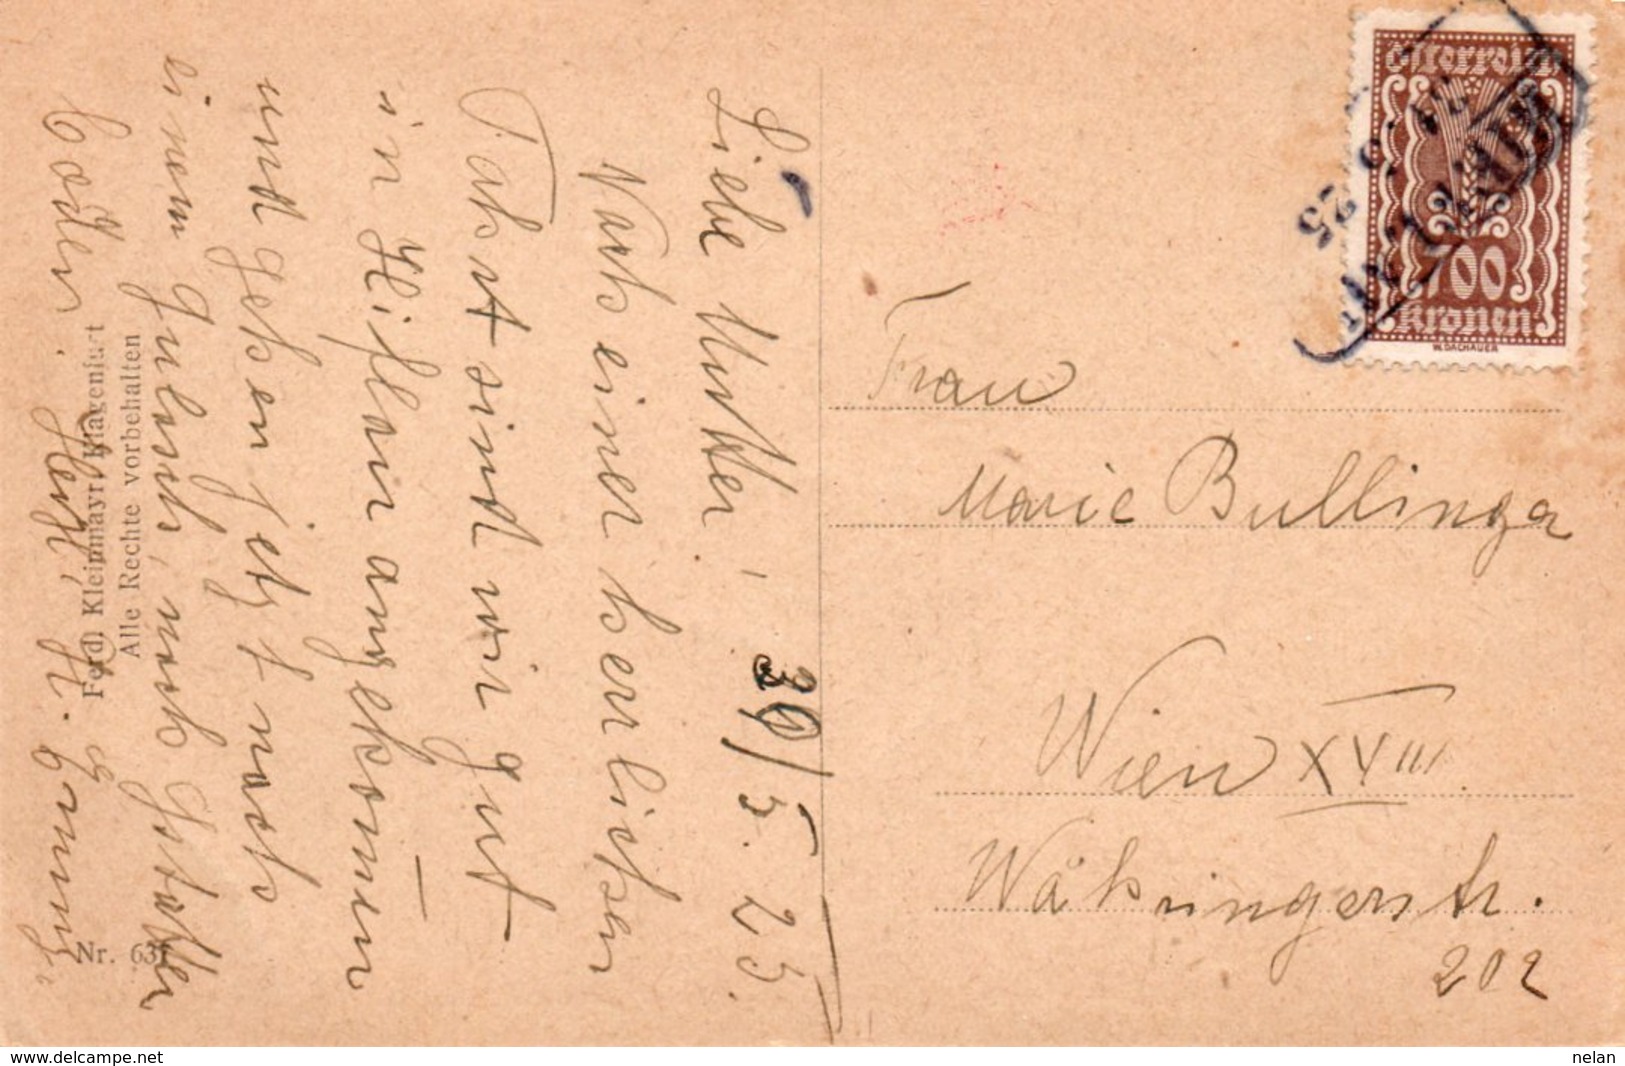 Liebe Mutter! 30/5. 25.
Nach einer herrlichen
Fahrt sind wir gut
in Hieflau angekom̅en
und gehen jetzt nach
einem Gulasch, nach Gstatter
boden.
Österreich
700
Kronen
W. DACHAUER
25
Frau
Marie Bullinger
Wien XVIII.
Währingerstr.
202
Ferd. Kleinmayr, Klagenfurt
Alle Rechte vorbehalten
Nr. 63
www.delcampe.net
nelan